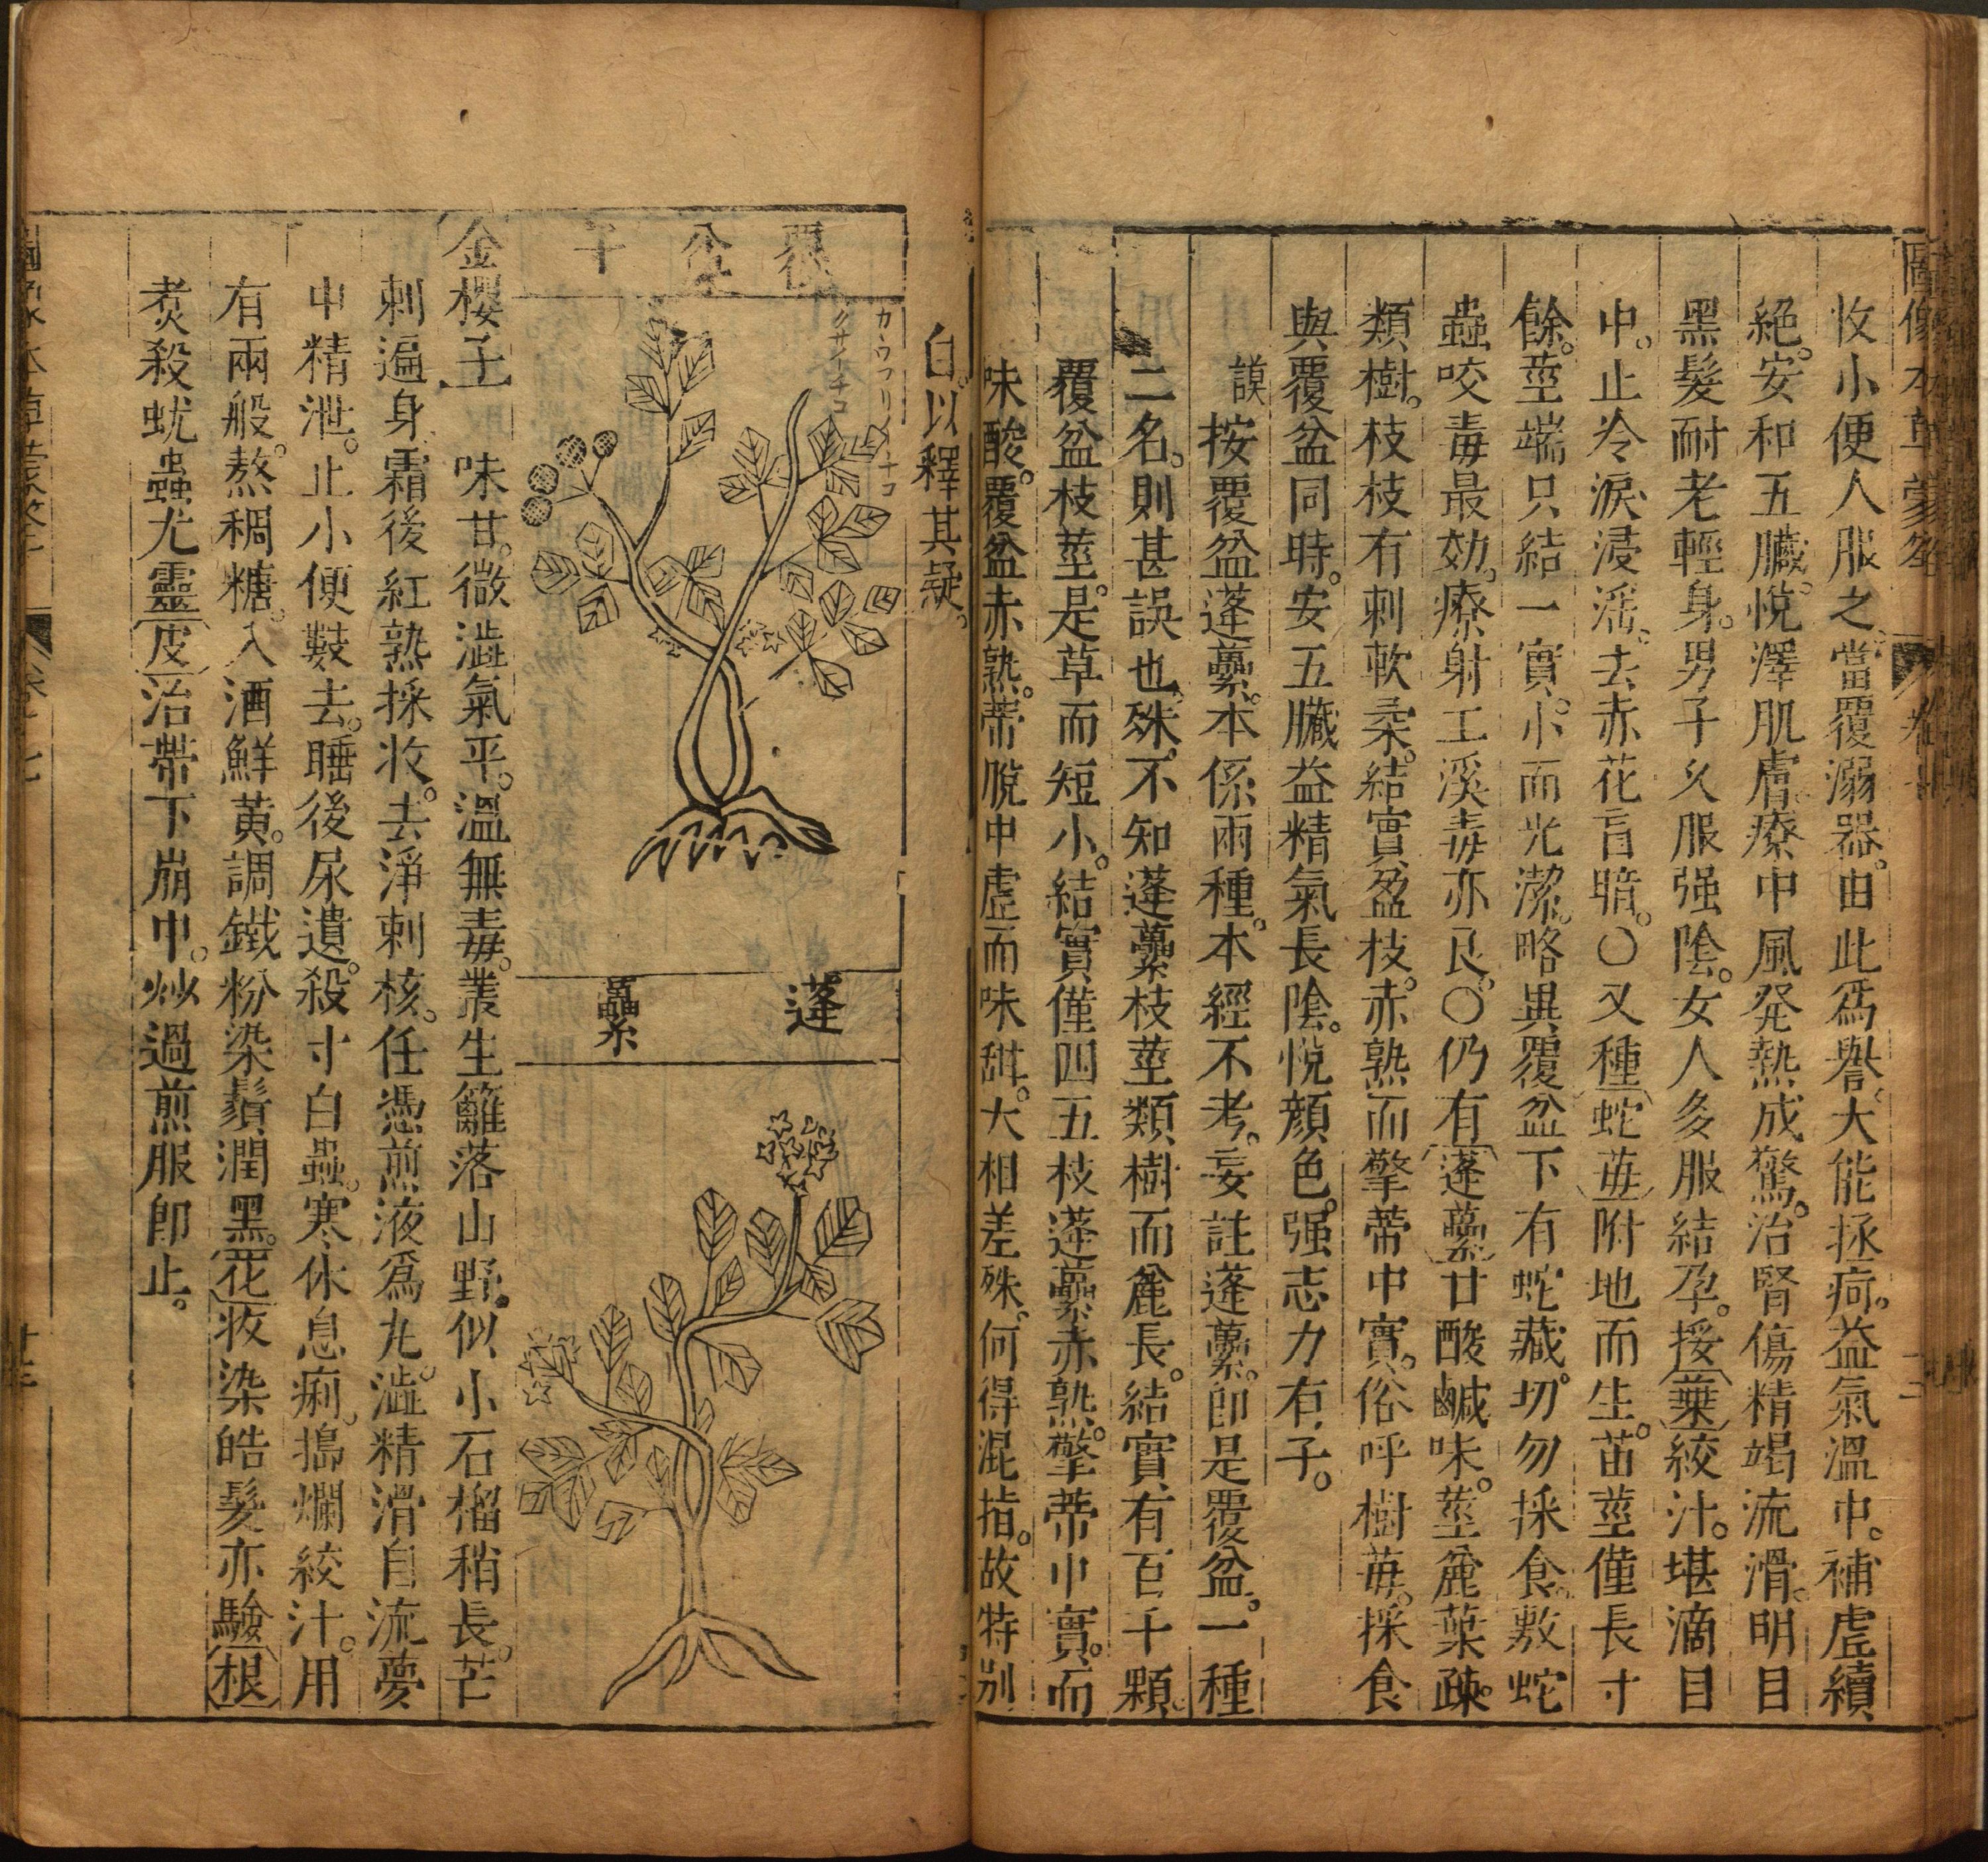 圖像本草蒙筌
卷七
收小便人服之。當覆溺器。由此爲譽。大能拯疴。益氣溫中。補虛續
絕。安和五臟。悅澤肌膚。療中風発熱成驚。治腎傷精竭流滑。明目
黑髮耐老輕身。男子久服强陰。女人多服結孕。挼葉絞汁。堪滴目
中。止冷淚浸淫。去赤花盲暗。○又種蛇苺附地而生。苗莖僅長寸
餘。莖端只結一實。小而光潔。略異覆盆下有蛇藏。切勿採食。敷蛇
蟲咬毒最効。療射工溪毒亦良。○仍有蓬蘽甘酸鹹味。莖麄葉疎。
類樹。枝枝有刺軟柔。結實盈枝。赤熟而擎蒂中實。俗呼樹苺。採食
與覆盆同時。安五臟益精氣長陰。悅顔色。强志力有子。
謨按覆盆蓬蘽。本係兩種。本經不考。妄註蓬蘽。卽是覆盆。一種
二名。則甚誤也。殊不知蓬蘽枝莖類樹而麄長。結實有百千顆。
覆盆枝莖。是草而短小。結實僅四五枝蓬蘽赤熟。擎蒂中實。而
味酸。覆盆赤熟。蒂脫中虛而味甜。大相差殊。何得混指。故特别
白。以釋其疑。
覆盆子
カウフリイチコ
クサイチコ
蓬蘽
金櫻子 味甘。微澁氣平。溫無毒。叢生籬落山野。似小石榴稍長。芒
刺遍身。霜後紅熟採收。去淨刺核。任憑煎液爲丸。澁精滑自流夢
中精泄。止小便數去。睡後尿遺。殺寸白蟲。寒休息痢。搗爛絞汁。用
有兩般。熬稠糖。入酒鮮黃。調鐵粉染鬚潤黑。花收染皓髮亦驗根
煑殺蚘蟲尤靈皮治帶下崩中。炒過煎服卽止。
圖像本草蒙筌
卷七